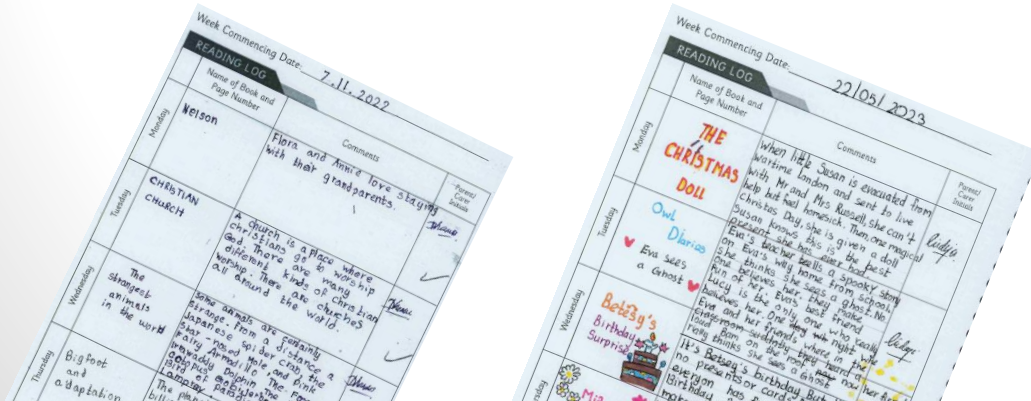 Week Commencing Date: 7.11.2022
READING LOG
Name of Book and
Page Number
Comments
Parent/
Carer
Initials
Monday
Nelson
Flora and Annie love staying
with their grandparents.
Tuesday
CHRISTIAN
CHURCH
A church is a place where
christians go to worship
God. There are many
different kinds of Christian
worship. There are churches
all around the world.
Wednesday
The
strangest
animals
in the world
Some animals are certainly
strange. From a distance a
Japanese spider crab, the
star nosed Mole, and pink
Fairy Armadillo, The
Irrawaddy Dolphin, The
octopus
bird of
Lamprey
Thursday
Bigfoot
and
adaptation
The
Week Commencing Date: 22/05/2023
READING LOG
Name of Book and
Page Number
Comments
Parent/
Carer
Initials
Monday
THE
CHRISTMAS
DOLL
When little Susan is evacuated from
wartime London and sent to live
with Mr and Mrs Russell, she can't
help but feel homesick. Then one magical
Christas Day, she is given a doll
Susan knows this is the best
present she has ever had
Tuesday
Owl
Diaries
Eva sees
a Ghost
Eva's teacher tells a spooky story
on Eva's way home from school,
She thinks she sees a ghost. No
one believes her, they make
fun of her. Eva's best friend
Lucy is the only one who really
believes her. One day
Eva and her friends where in the
classroom suddenly they heard a
said Bam on the roof
really thinks she sees a Ghost
Wednesday
Betsy's
Birthday
Surprise
It's Betsy's birthday. But
no presents or cards
everyon has
Birthday